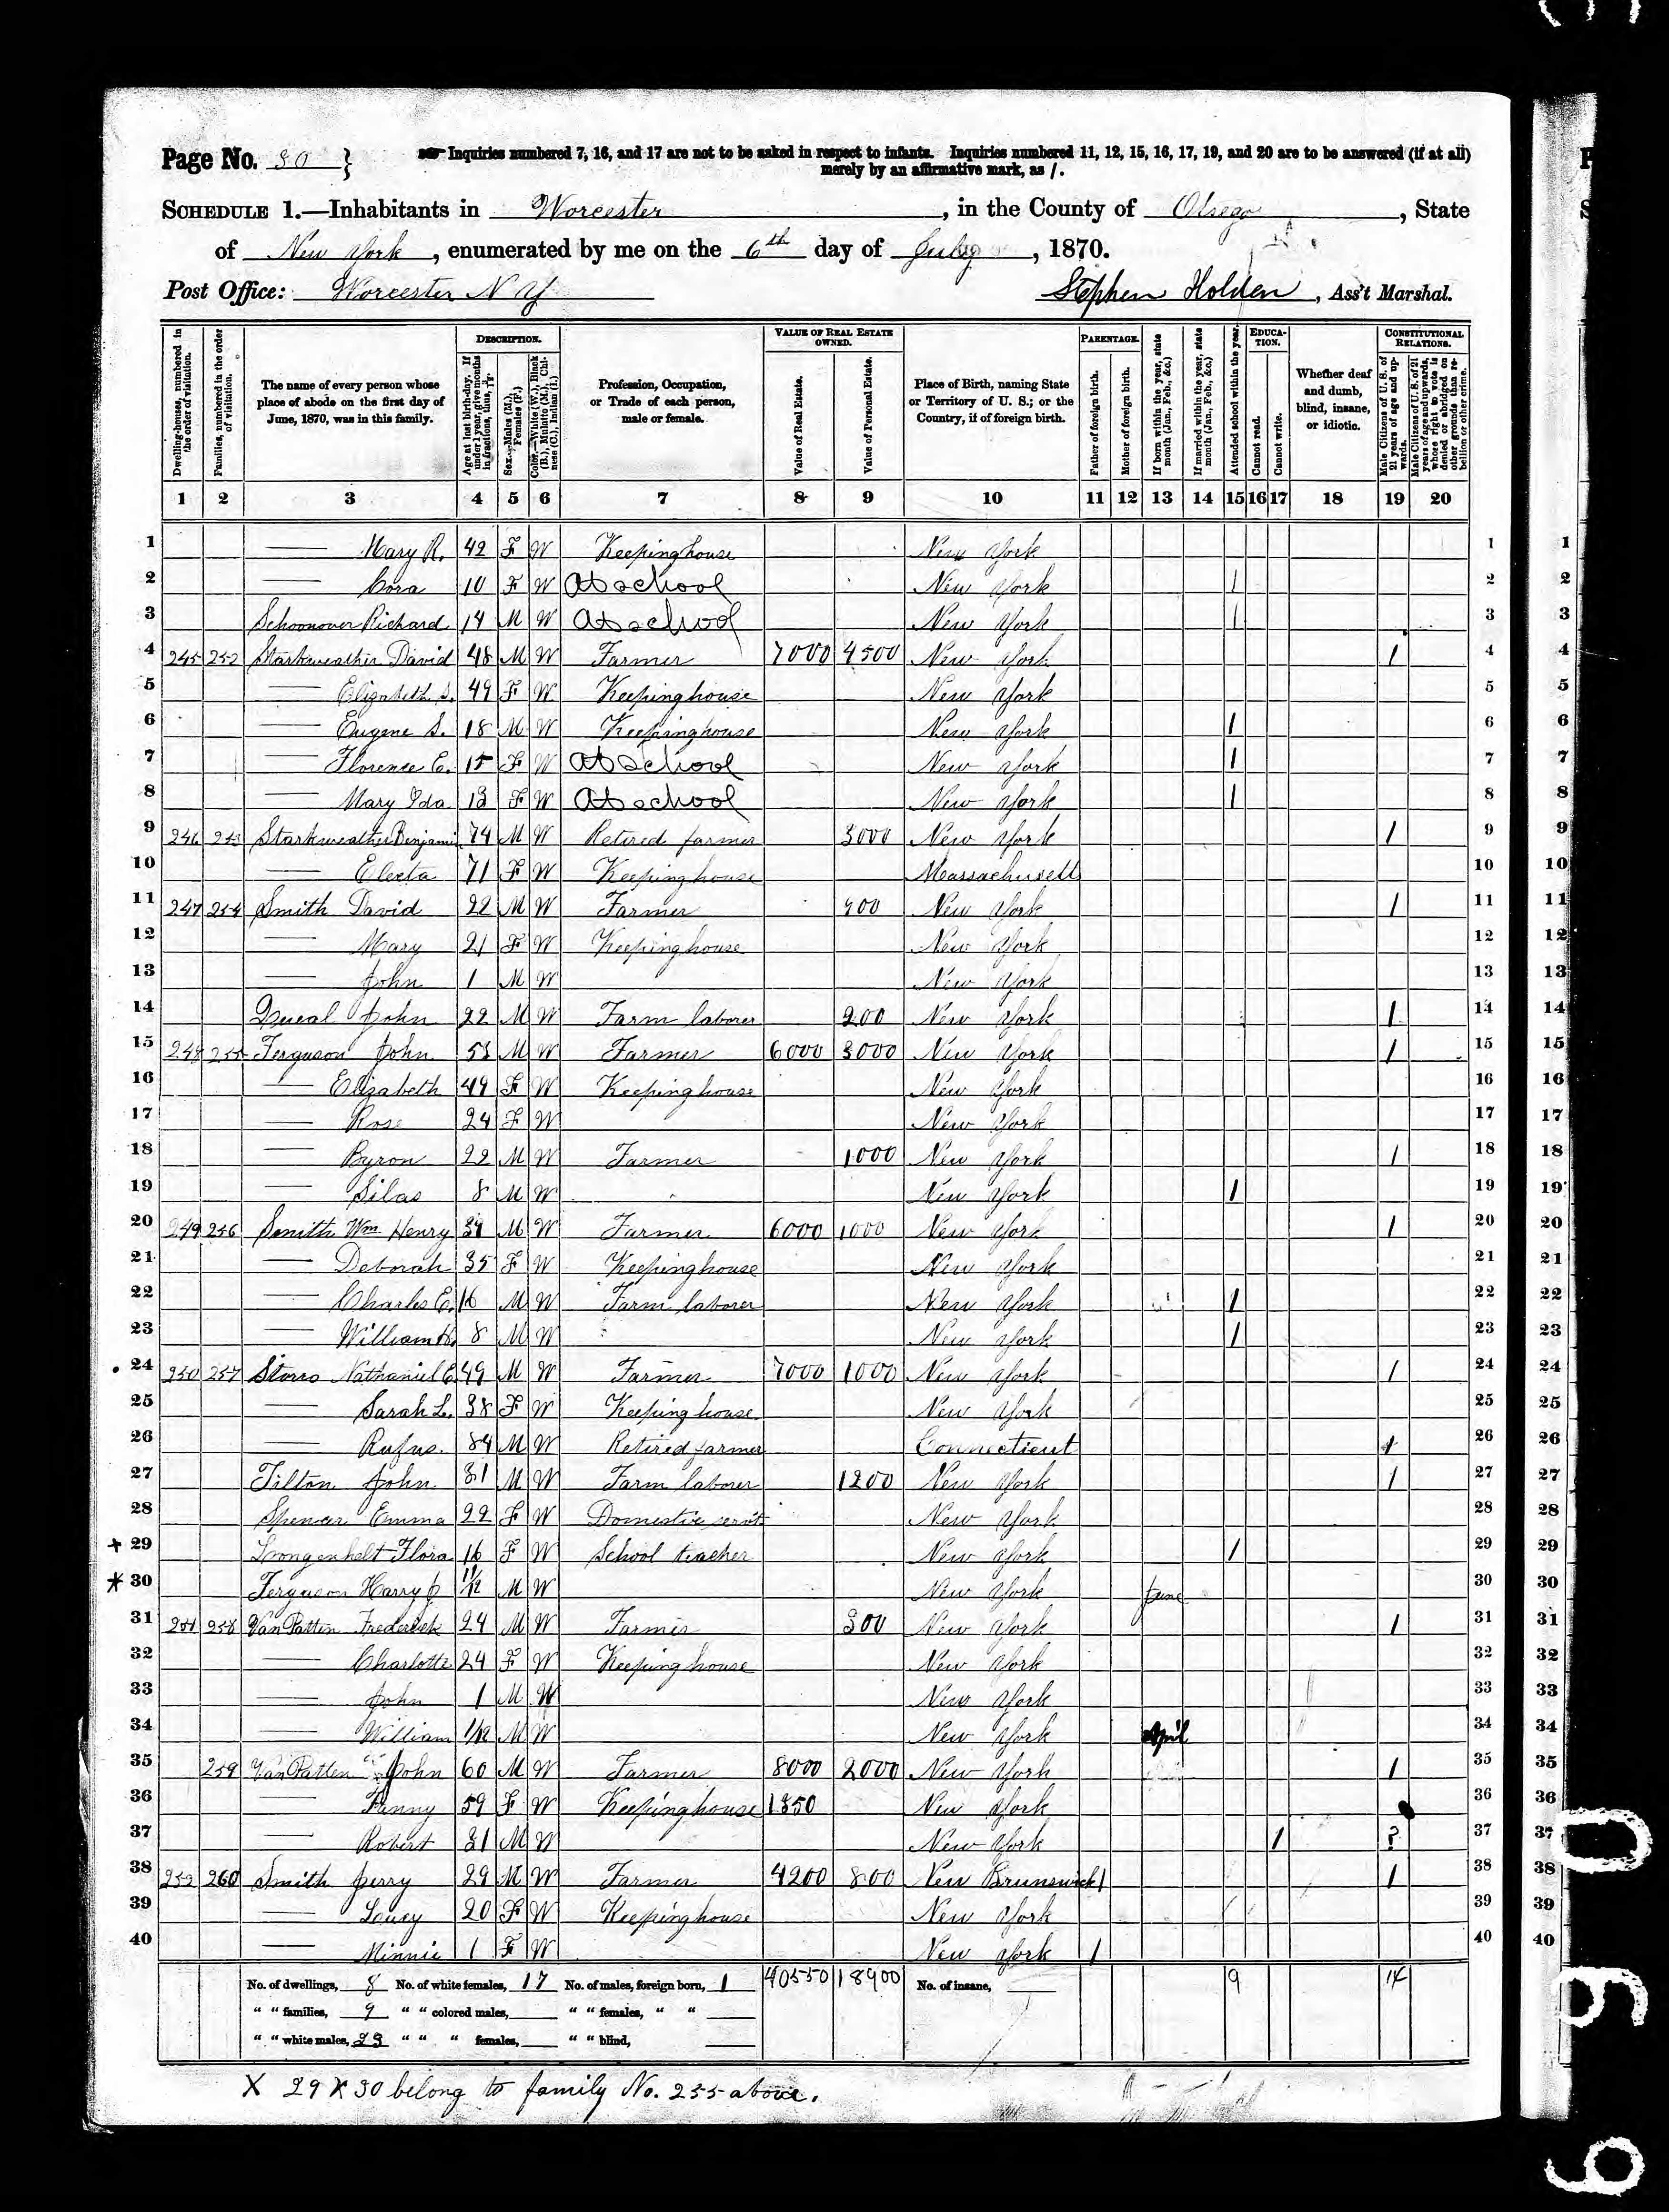 Page No. 30 }
Inquiries numbered 7, 16, and 17 are not to be asked in respect to infants. Inquiries numbered 11, 12, 15, 16, 17, 19, and 20 are to be answered (if at all)
merely by an affirmative mark, as /.
SCHEDULE 1.—Inhabitants in Worcester, in the County of Otsego, State
of New York, enumerated by me on the 6th day of July, 1870.
Post Office: Worcester N Y
Stephen Holden, Ass't Marshal.
Dwelling-houses, numbered in the order of visitation.
Families, numbered in the order of visitation.
The name of every person whose place of abode on the first day of June, 1870, was in this family.
DESCRIPTION.
Age at last birth-day. If under 1 year, give months in fractions, thus, 3/12.
Sex.—Males (M.), Females (F.)
Color.—White (W.), Black (B.), Mulatto (M.), Chinese (C.), Indian (I.)
Profession, Occupation, or Trade of each person, male or female.
VALUE OF REAL ESTATE OWNED.
Value of Real Estate.
Value of Personal Estate.
Place of Birth, naming State or Territory of U. S.; or the Country, if of foreign birth.
PARENTAGE.
Father of foreign birth.
Mother of foreign birth.
If born within the year, state month (Jan., Feb., &c.)
If married within the year, state month (Jan., Feb., &c.)
Attended school within the year.
EDUCATION.
Cannot read.
Cannot write.
Whether deaf and dumb, blind, insane, or idiotic.
CONSTITUTIONAL RELATIONS.
Male Citizens of U. S. of 21 years of age and upwards.
Male Citizens of U. S. of 21 years of age and upwards, whose right to vote is denied or abridged on other grounds than rebellion or other crime.
1 2 3 4 5 6 7 8 9 10 11 12 13 14 15 16 17 18 19 20
1 — Mary R. 42 F W Keeping house New York 1 1
2 — Cora 10 F W At school New York / 2 2
3 Schoonover Richard 14 M W At school New York / 3 3
4 245 252 Starkweather David 48 M W Farmer 7000 4500 New York / 4 4
5 — Elizabeth S. 49 F W Keeping house New York 5 5
6 — Eugene S. 18 M W Keeping house New York / 6 6
7 — Florence E. 15 F W At school New York / 7 7
8 — Mary Ida 13 F W At school New York / 8 8
9 246 253 Starkweather Benjamin 74 M W Retired farmer 3000 New York / 9 9
10 — Electa 71 F W Keeping house Massachusetts 10 10
11 247 254 Smith David 22 M W Farmer 900 New York / 11 11
12 — Mary 21 F W Keeping house New York 12 12
13 — John 1 M W New York 13 13
14 John 22 M W Farm laborer 200 New York / 14 14
15 248 255 Ferguson John 53 M W Farmer 6000 3000 New York / 15 15
16 — Elizabeth 49 F W Keeping house New York 16 16
17 — Rose 24 F W New York 17 17
18 — Byron 22 M W Farmer 1000 New York / 18 18
19 — Silas 8 M W New York / 19 19
20 249 256 Smith Wm. Henry 39 M W Farmer 6000 1000 New York / 20 20
21 — Deborah 35 F W Keeping house New York 21 21
22 — Charles E. 16 M W Farm laborer New York / 22 22
23 — William H. 8 M W New York / 23 23
24 250 257 Storrs Nathaniel E. 49 M W Farmer 7000 1000 New York / 24 24
25 — Sarah L. 38 F W Keeping house New York 25 25
26 — Rufus. 84 M W Retired farmer Connecticut / 26 26
27 Tilton John 31 M W Farm laborer 1200 New York / 27 27
28 Spencer Emma 22 F W Domestic servt New York 28 28
+ 29 Flora 16 F W School teacher New York / 29 29
* 30 Ferguson Harry J 11/12 M W New York June 30 30
31 251 258 Van Patten Frederick 24 M W Farmer 300 New York / 31 31
32 — Charlotte 24 F W Keeping house New York 32 32
33 — John 1 M W New York 33 33
34 — William 1/12 M W New York April 34 34
35 259 Van Patten John 60 M W Farmer 8000 2000 New York / 35 35
36 — Fanny 59 F W Keeping house 1350 New York 36 36
37 — Robert 31 M W New York / ? 37 37
38 252 260 Smith Jerry 29 M W Farmer 4200 800 New Brunswick / / 38 38
39 — Loucy 20 F W Keeping house New York 39 39
40 — Minnie 1 F W New York / 40 40
No. of dwellings, 8 No. of white females, 17 No. of males, foreign born, 1 40550 18900 No. of insane, 9 14
" " families, 9 " " colored males, " " females, " "
" " white males, 23 " " " females, " " blind,
X 29 X 30 belong to family No. 255 above.